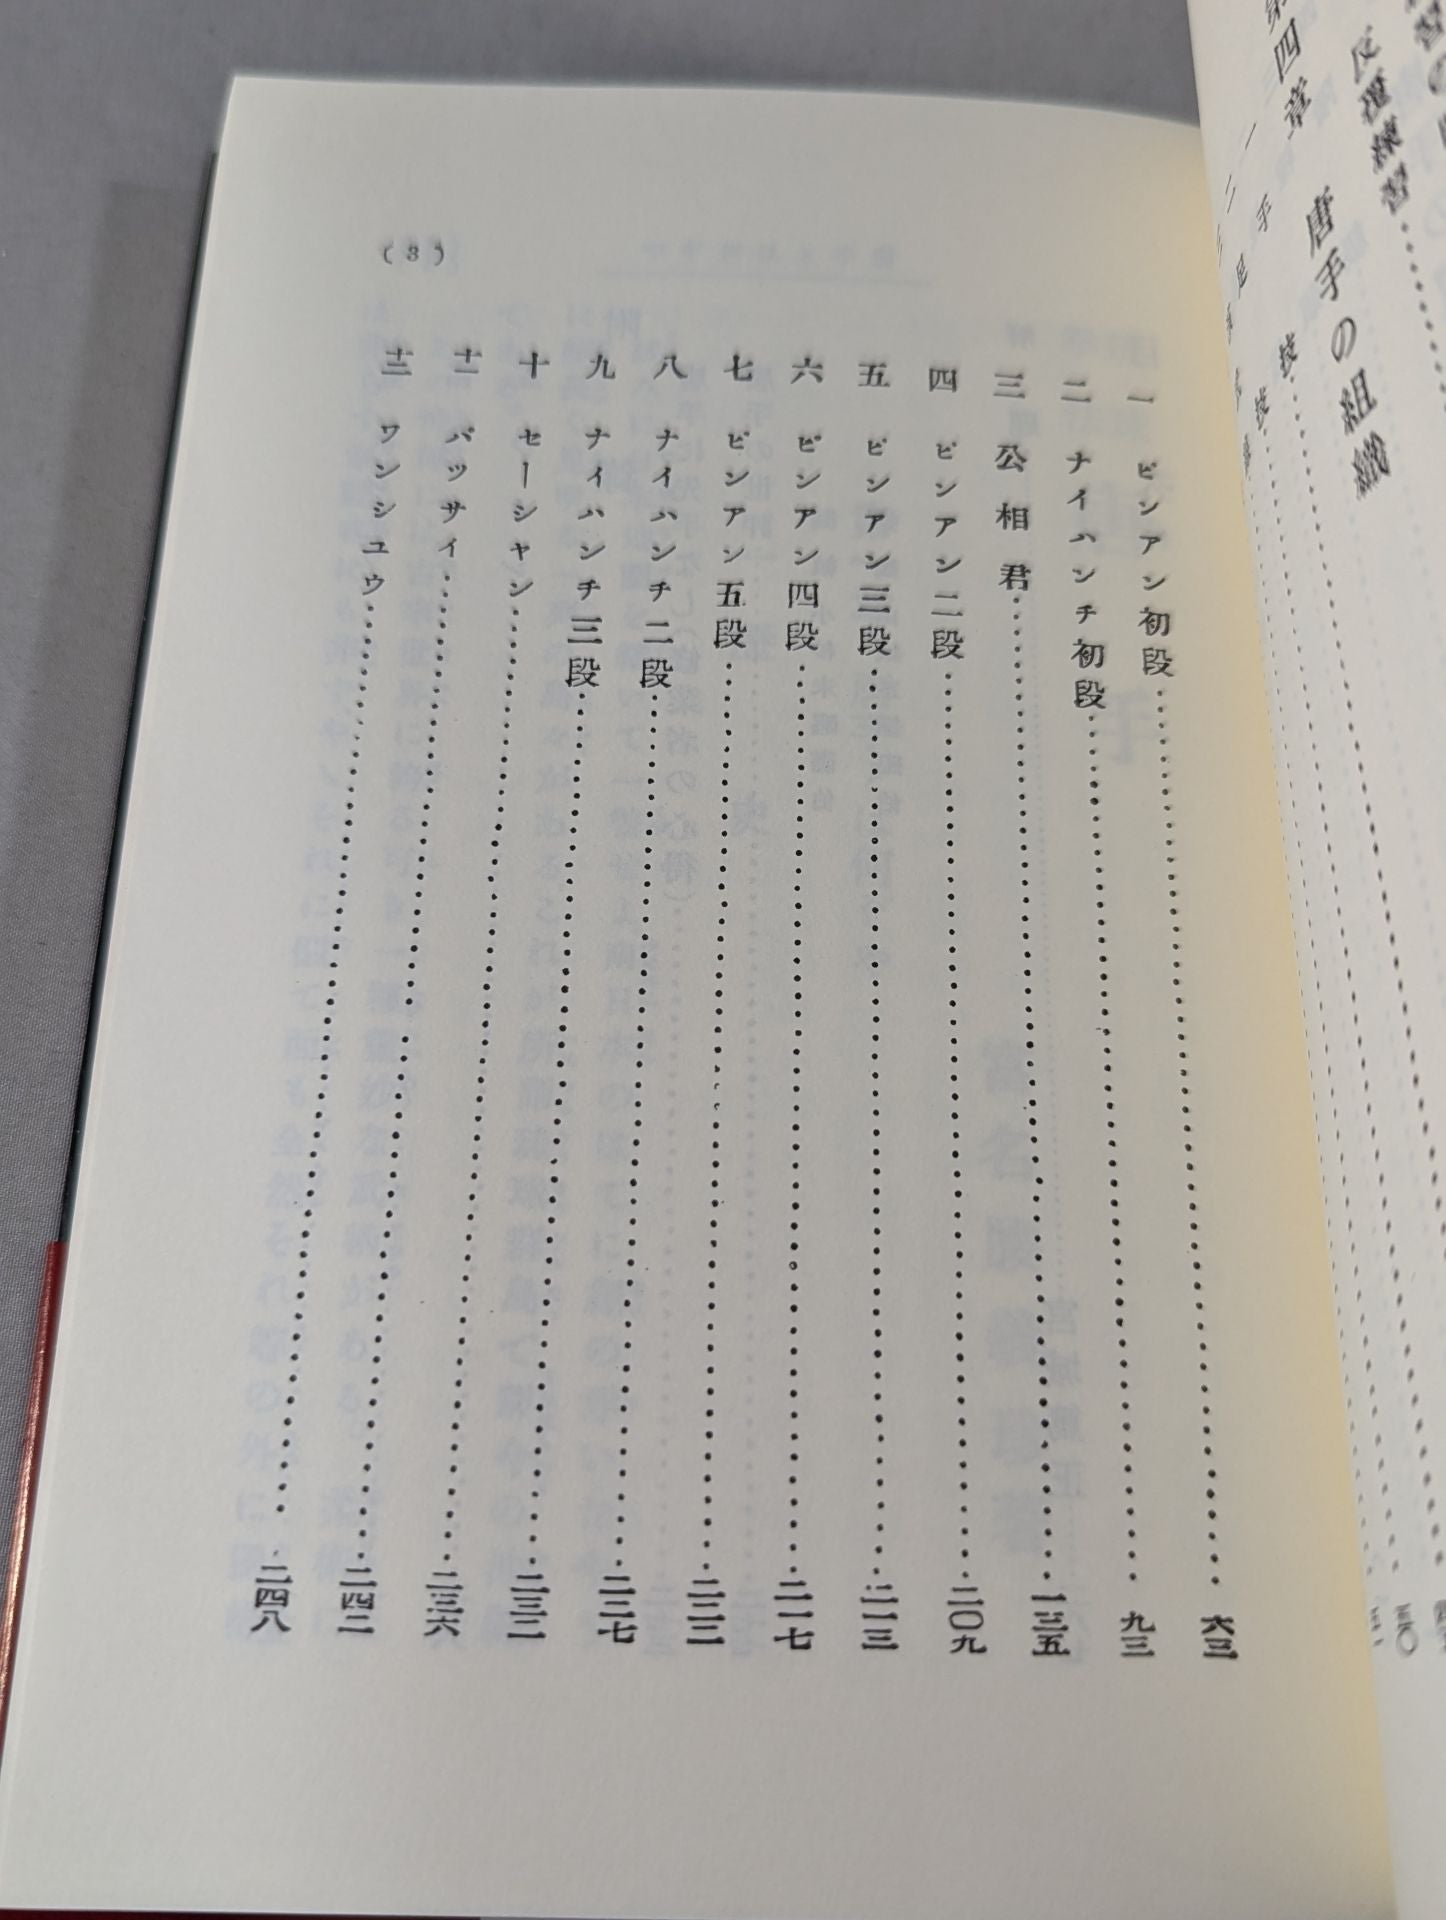 反覆練習
第四章 唐手の組織
一 手技
二 足技
(3)
一 ピンアン初段 六三
二 ナイハンチ初段 九三
三 公相君 一三五
四 ピンアン二段 二〇九
五 ピンアン三段 二一三
六 ピンアン四段 二一七
七 ピンアン五段 二二二
八 ナイハンチ二段 二二七
九 ナイハンチ三段 二三二
十 セーシヤン 二三六
十一 パッサイ 二四二
十二 ワンシユウ 二四八